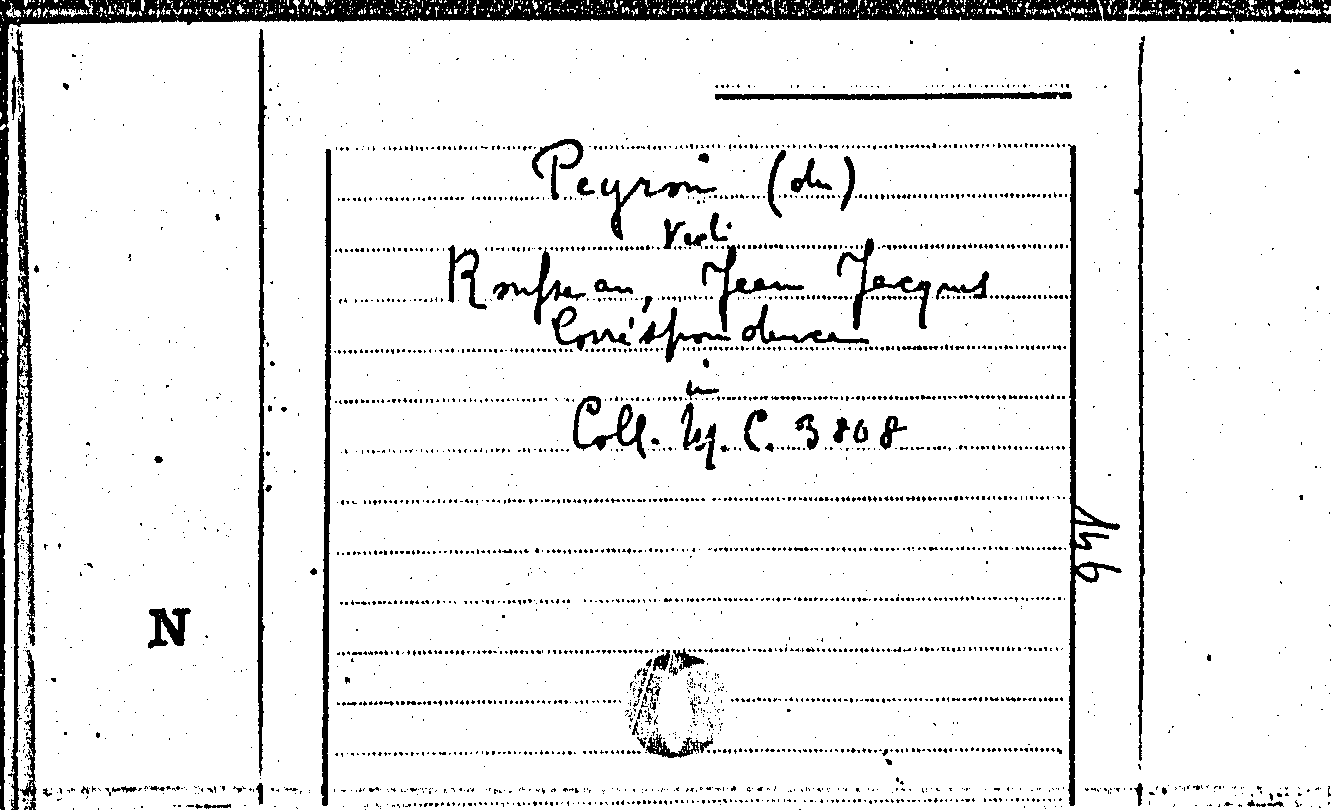 Peyron (du)
Vedi
Rousseau, Jean Jacques
Correspondance
in
Coll. C. 3808
146
N